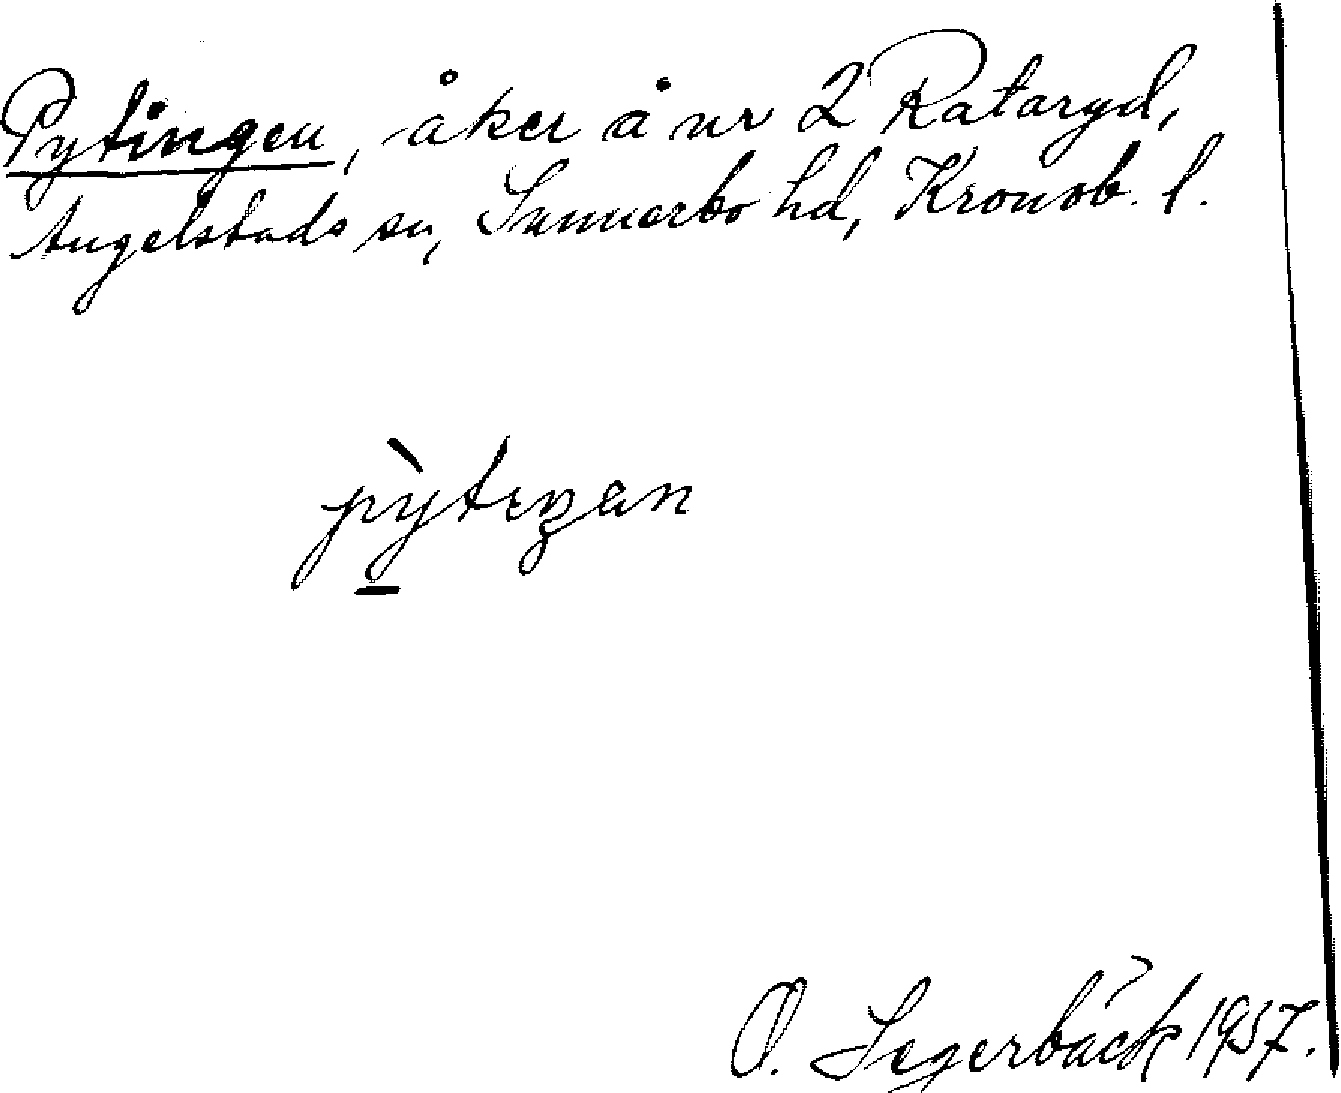 Pytingen, åker å nr 2 Rataryd,
Angelstads sn, Sunnerbo hd, Kronob. l.
O. Segerbäck 1957.